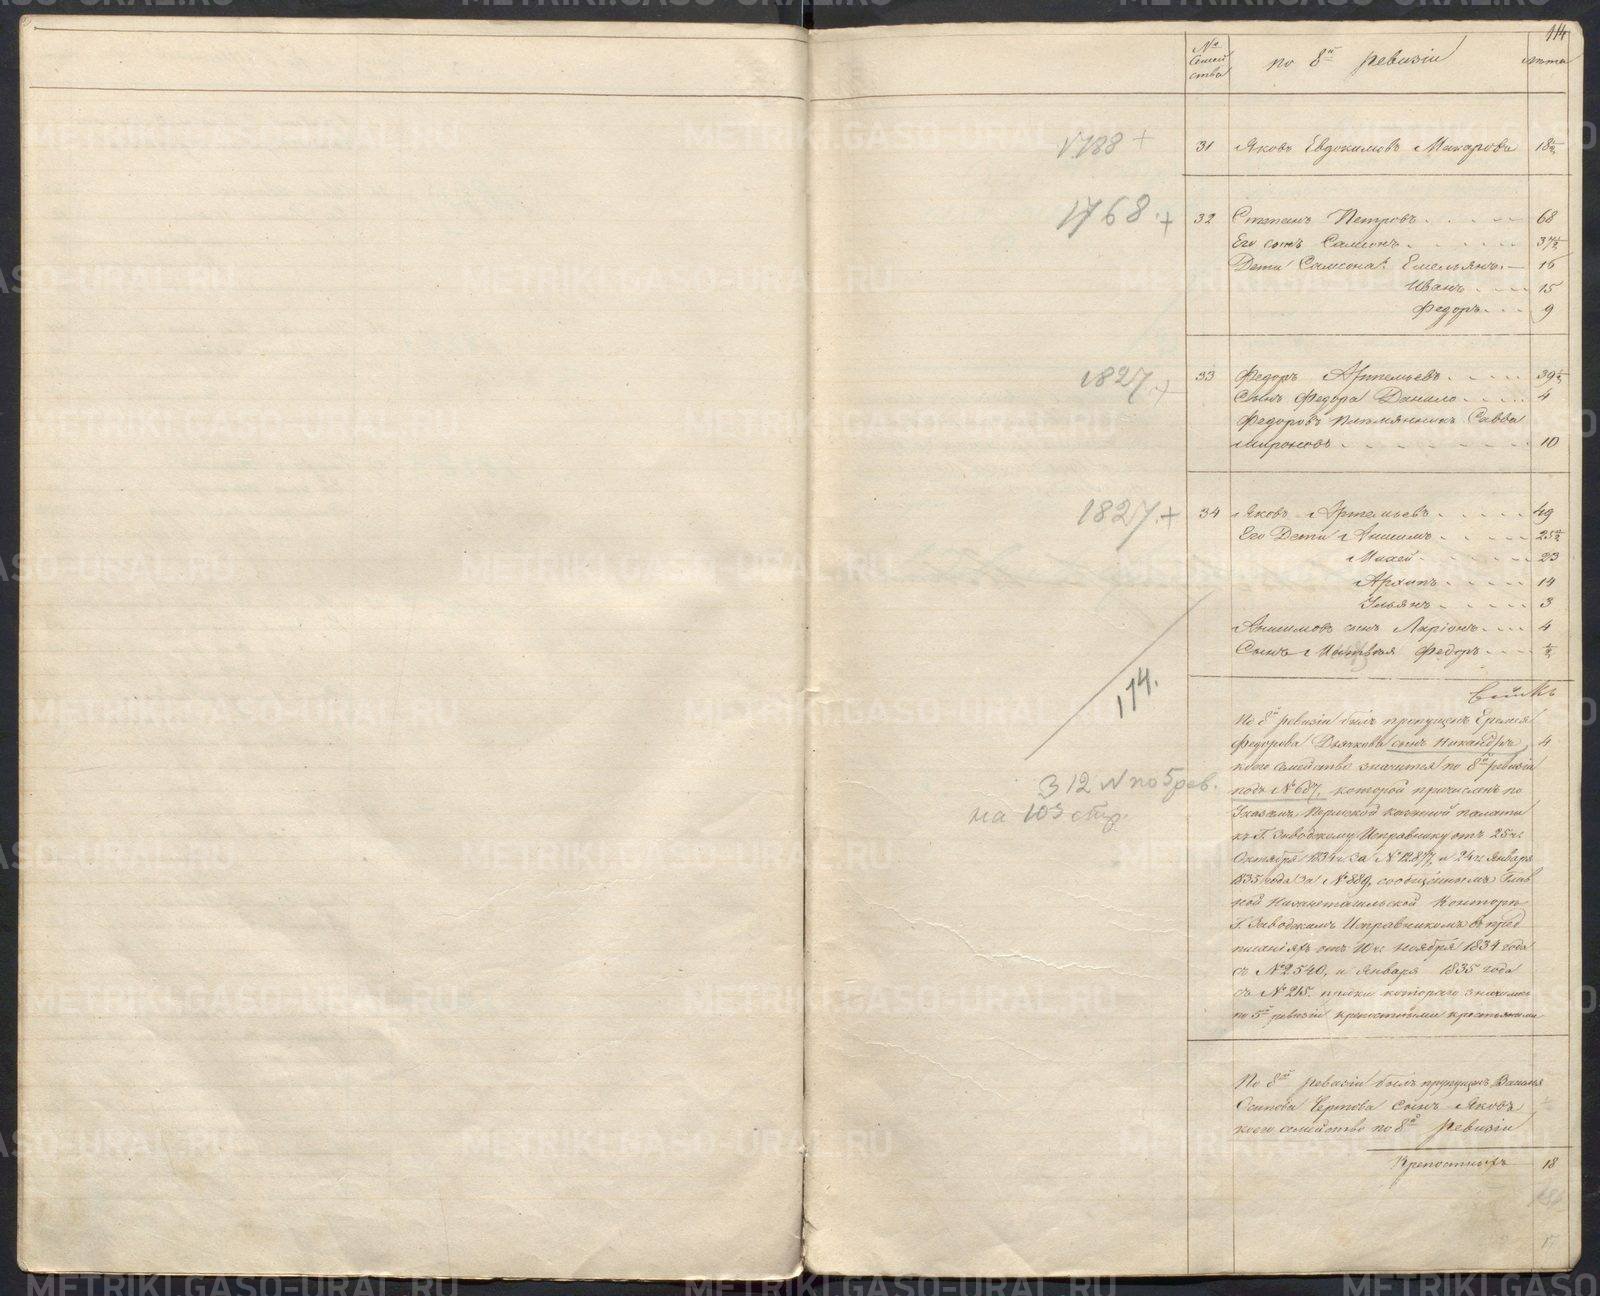 114
№ Семейства
по 8й ревизіи
лѣта
1788 +
31 Яковъ Евдокимовъ Макаровъ 18½
1768. +
32 Степанъ Петровъ 68
Его сынъ Самсонъ 37½
Дети Самсона: Емельянъ 16
Иванъ 15
Федоръ 9
1827. +
33 Федоръ Артемьевъ 39½
Сынъ Федора Данило 4
Федоровъ племянникъ Савва
Мироновъ 10
1827. +
34 Яковъ Артемьевъ 49
Его Дети Анисимъ 25½
Михей 23
Архипъ 14
Ульянъ 3
Анисимовъ сынъ Ларіонъ 4
Сынъ Федоръ ½
174.
По 8й ревизіи былъ пропущенъ Еремѣя
Федорова Дьячкова сынъ Никандръ 4
коего семейство значится по 8й ревизіи
подъ № 687, которой причисленъ по
Указамъ Пермской казенной палаты
къ Г. Заводскому Исправнику отъ 25 ч.
Октября 1834 г. за № 12877, и 24 ч. Января
1835 года за № 889, сообщеннымъ Глав
ной Нижнетагильской Конторѣ
Г. Заводскимъ Исправникомъ въ пред
писаніяхъ отъ 10 ч. ноября 1834 года
съ № 2540, и Января 1835 года
съ № 215. предки котораго значились
по 5й ревизіи крепостными крестьянами
312 № по 5 рев.
на 103 стр.
По 8й ревизіи былъ пропущенъ Василья
Осипова Чертова сынъ Яковъ
коего семейство по 8й ревизіи
Крепостныхъ 18
METRIKI.GASO-URAL.RU